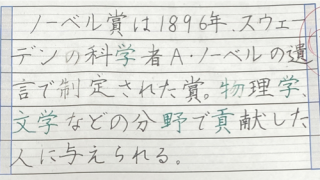 ノーベル賞は1896年、スウェー
デンの科学者A・ノーベルの遺
言で制定された賞。物理学、
文学などの分野で貢献した
人に与えられる。